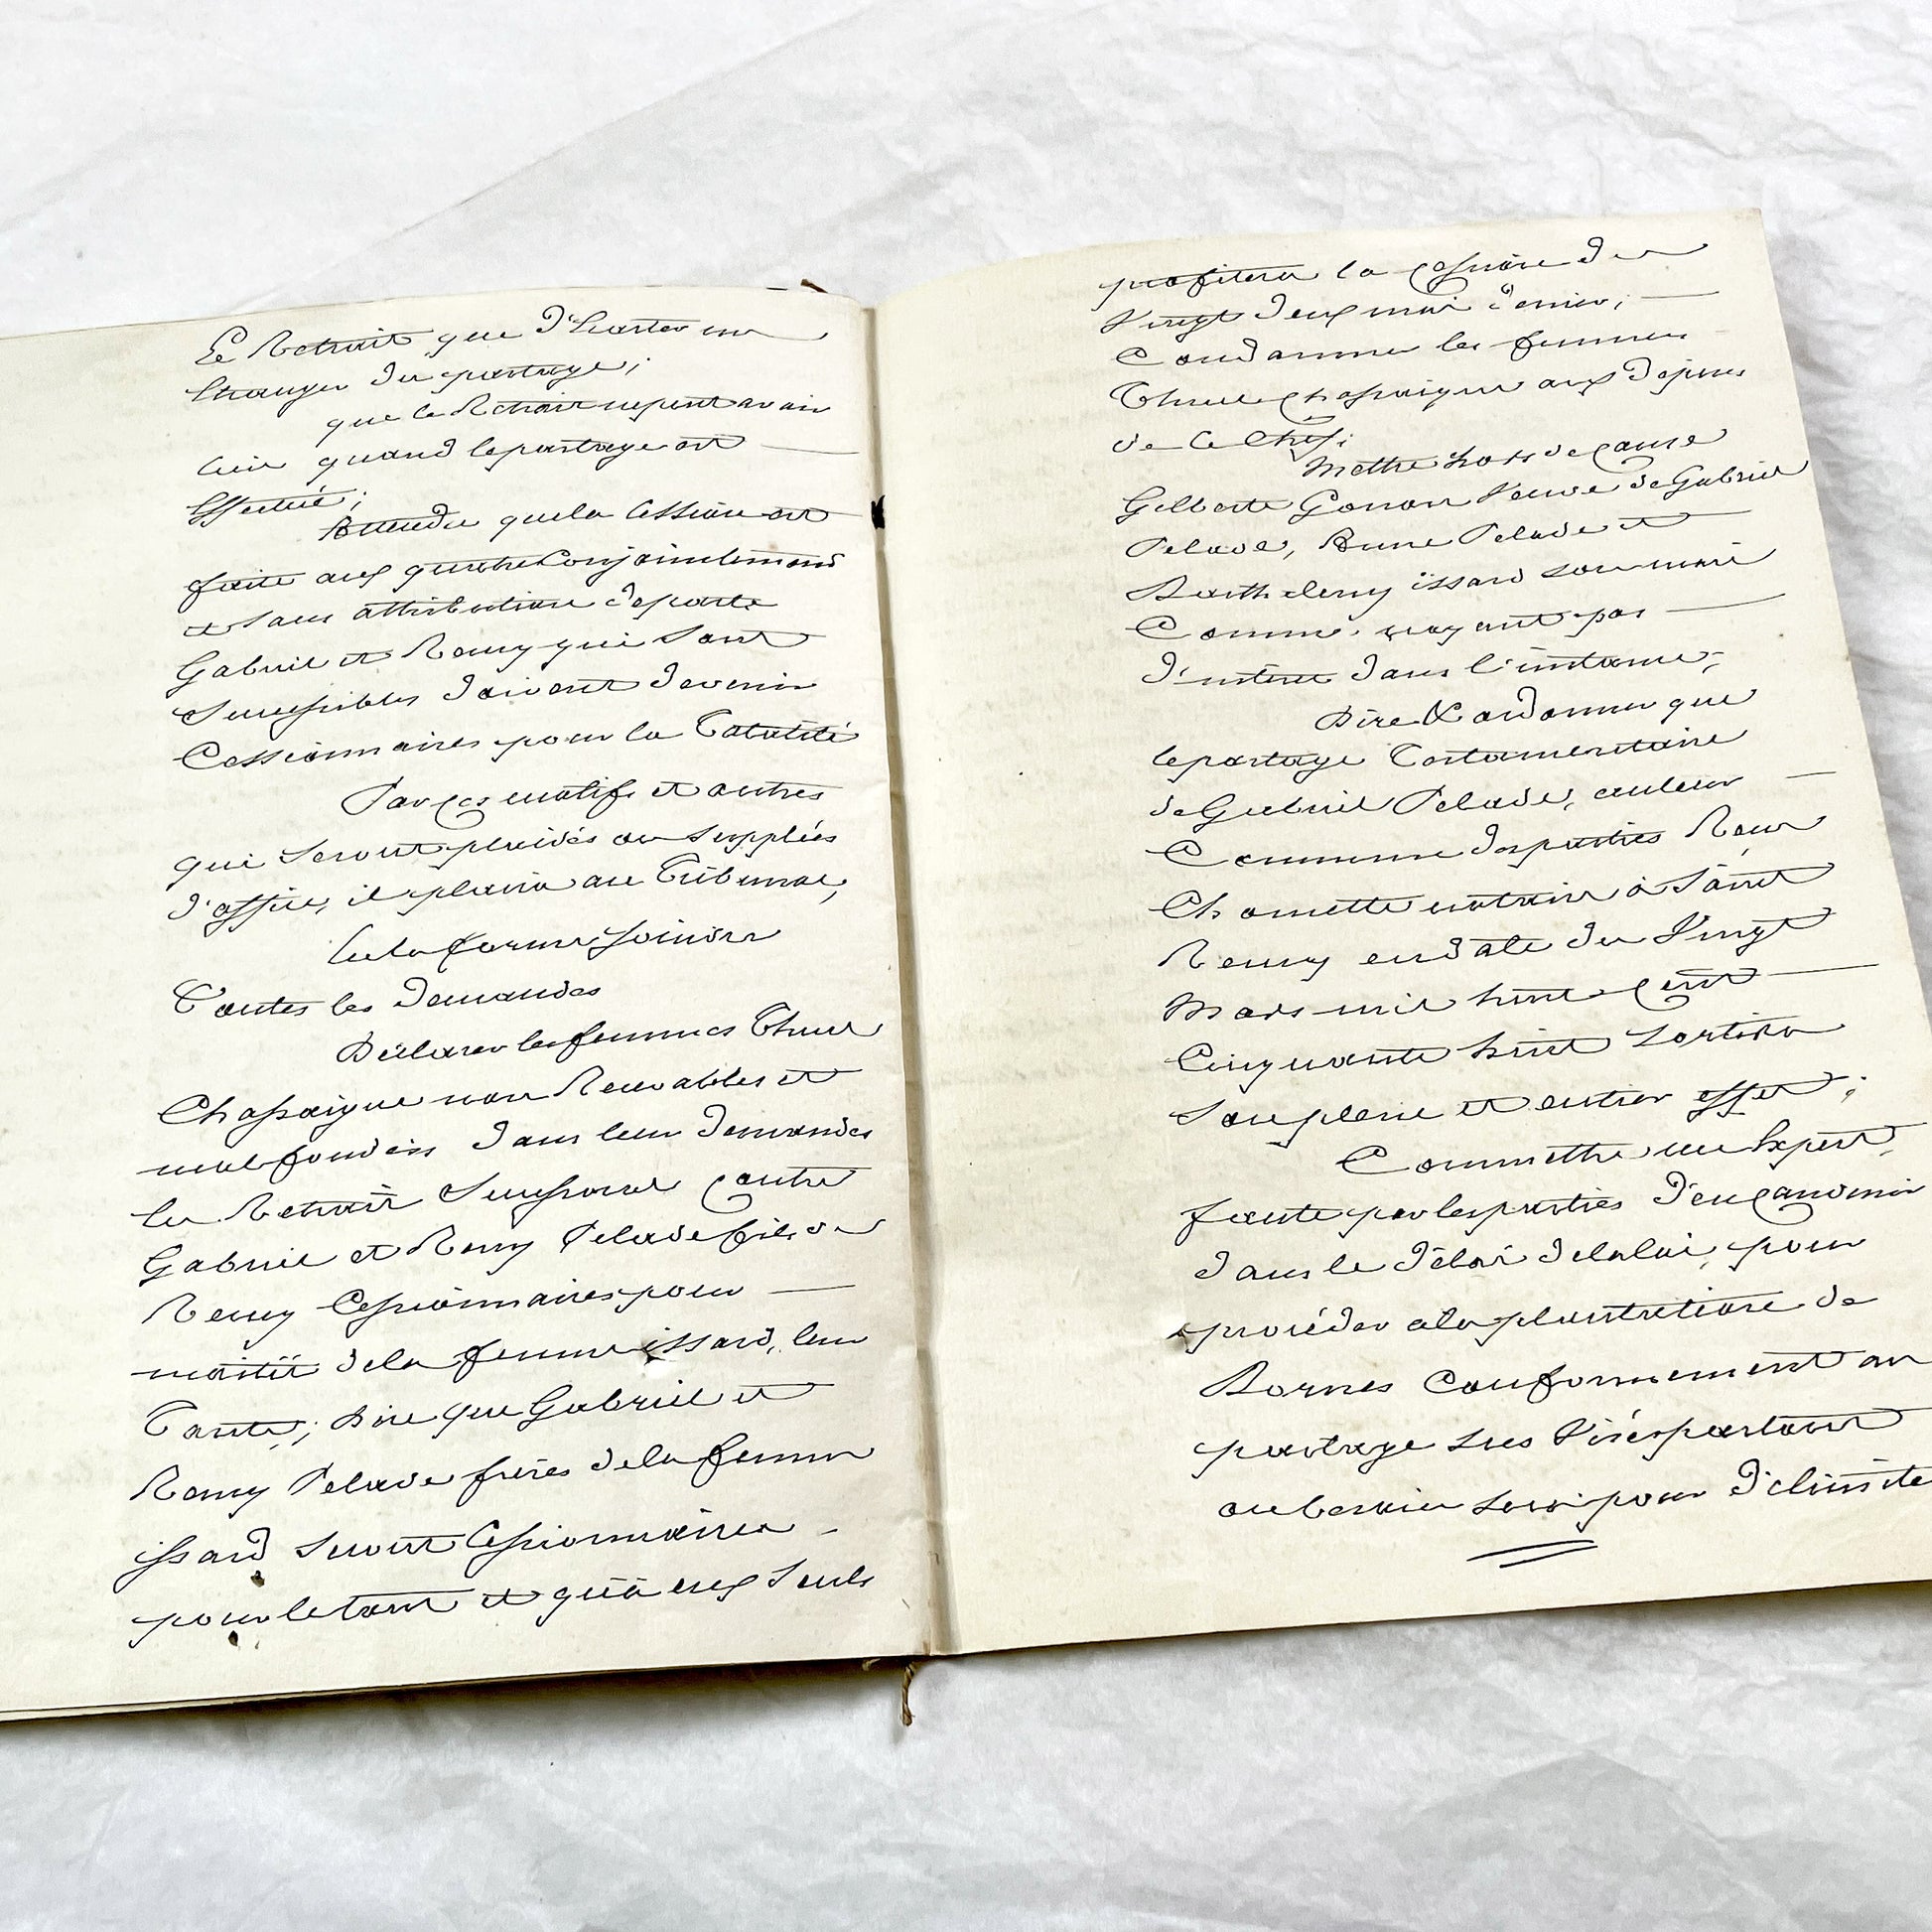 Le Retrait que d'Ecarter un
Etranger du partage;
que le Retrait ne peut avoir
lieu quand le partage est
Effectué;
Attendu que la Cession est
faite aux quatre Conjointement
et sans attribution de parts
Gabriel et Remy qui sont
Successibles doivent devenir
Cessionnaires pour la Totalité
Par ces motifs et autres
qui seront plaidés ou suppléés
d'office, il plaira au Tribunal,
En la forme Joindre
Toutes les demandes
Déclarer les femmes Thuel
Chassaigne non Recevables et
mal fondées dans leur demandes
en Retrait Successoral contre
Gabriel et Remy Pelade fils de
Remy Cessionnaires pour
moitié de la femme issard, leur
Tante; Dire que Gabriel et
Remy Pelade frères de la femme
issard seront Cessionnaires
pour le tout et qu'à eux seuls
profitera la cession du
Vingt deux mai dernier;
Condamner les femmes
Thuel Chassaigne aux dépens
de ce Chef;
Mettre hors de cause
Gilberte Gonon Veuve de Gabriel
Pelade, Anne Pelade et
Barthelemy issard son mari
Comme n'ayant pas
d'intérêt dans l'instance;
Dire & ordonner que
le partage Testamentaire
de Gabriel Pelade, auteur
Commun des parties Reçu
Chomette notaire à Saint
Remy en date du Vingt
Mars mil huit cent
Cinquante huit sortira
son plein et entier effet;
Commettre un Expert,
faute par les parties d'en convenir
dans le délai de la loi, pour
procéder a la plantation de
Bornes Conformement au
partage sus visé partout
ou besoin sera pour délimiter